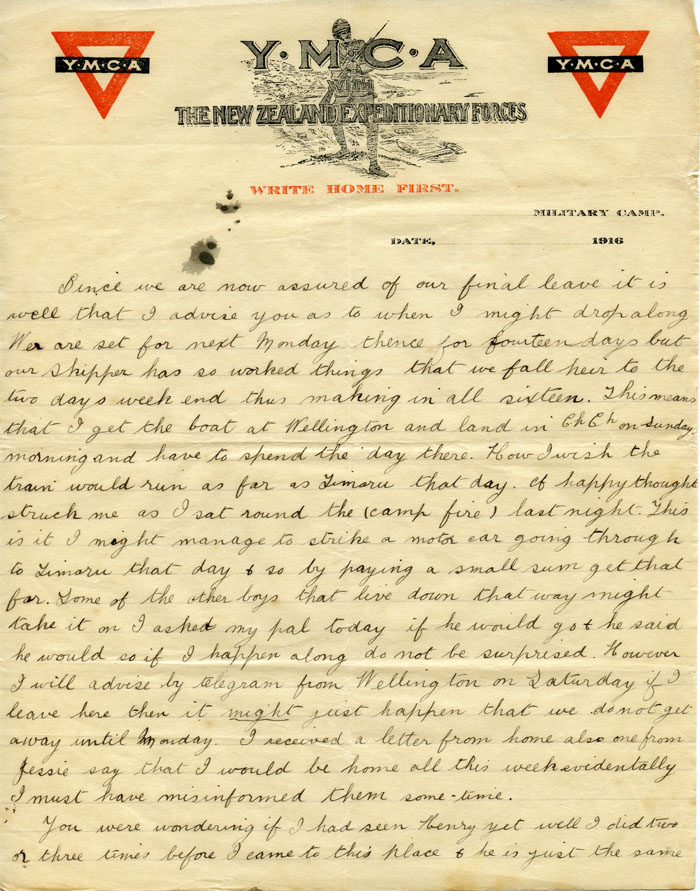 Y·M·C·A
Y·M·C·A
Y·M·C·A
WITH
THE NEW ZEALAND EXPEDITIONARY FORCES
WRITE HOME FIRST.
MILITARY CAMP.
DATE, 1916
Since we are now assured of our final leave it is
well that I advise you as to when I might drop along
We are set for next Monday thence for fourteen days but
our skipper has so worked things that we fall heir to the
two days week end thus making in all sixteen. This means
that I get the boat at Wellington and land in Ch Ch on Sunday.
morning and have to spend the day there. How I wish the
train would run as far as Timaru that day. A happy thought
struck me as I sat round the (camp fire) last night. This
is it I might manage to strike a motor car going through
to Timaru that day & so by paying a small sum get that
far. Some of the other boys that live down that way might
take it on I asked my pal today if he would go & he said
he would so if I happen along do not be surprised. However
I will advise by telegram from Wellington on Saturday if I
leave here then it might just happen that we do not get
away until Monday. I received a letter from home also one from
Jessie say that I would be home all this week evidentally
I must have misinformed them some-time.
You were wondering if I had seen Henry yet well I did two
or three times before I came to this place & he is just the same